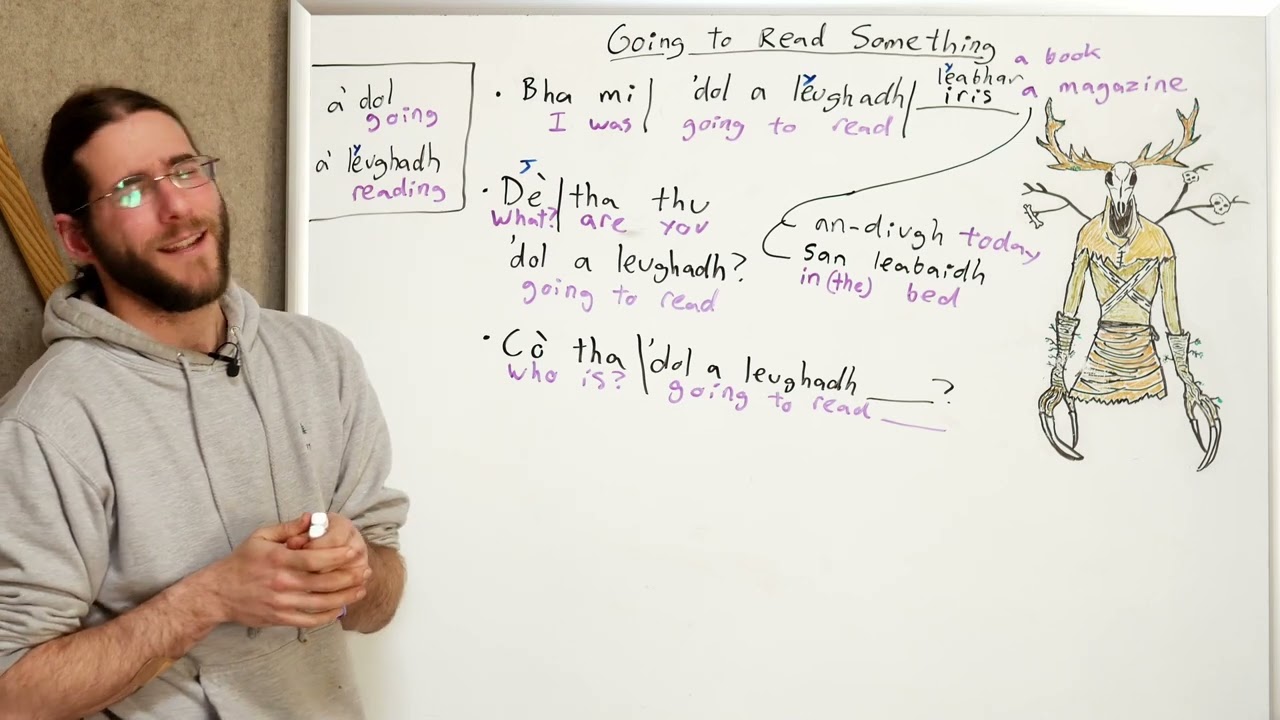 Going to Read Something
a' dol
going
a' leughadh
reading
• Bha mi | 'dol a leughadh | leabhar a book
iris a magazine
I was going to read
• Dè | tha thu
what? are you
'dol a leughadh?
going to read
an-diugh today
san leabaidh
in (the) bed
• Cò tha | 'dol a leughadh ____?
who is? going to read ____